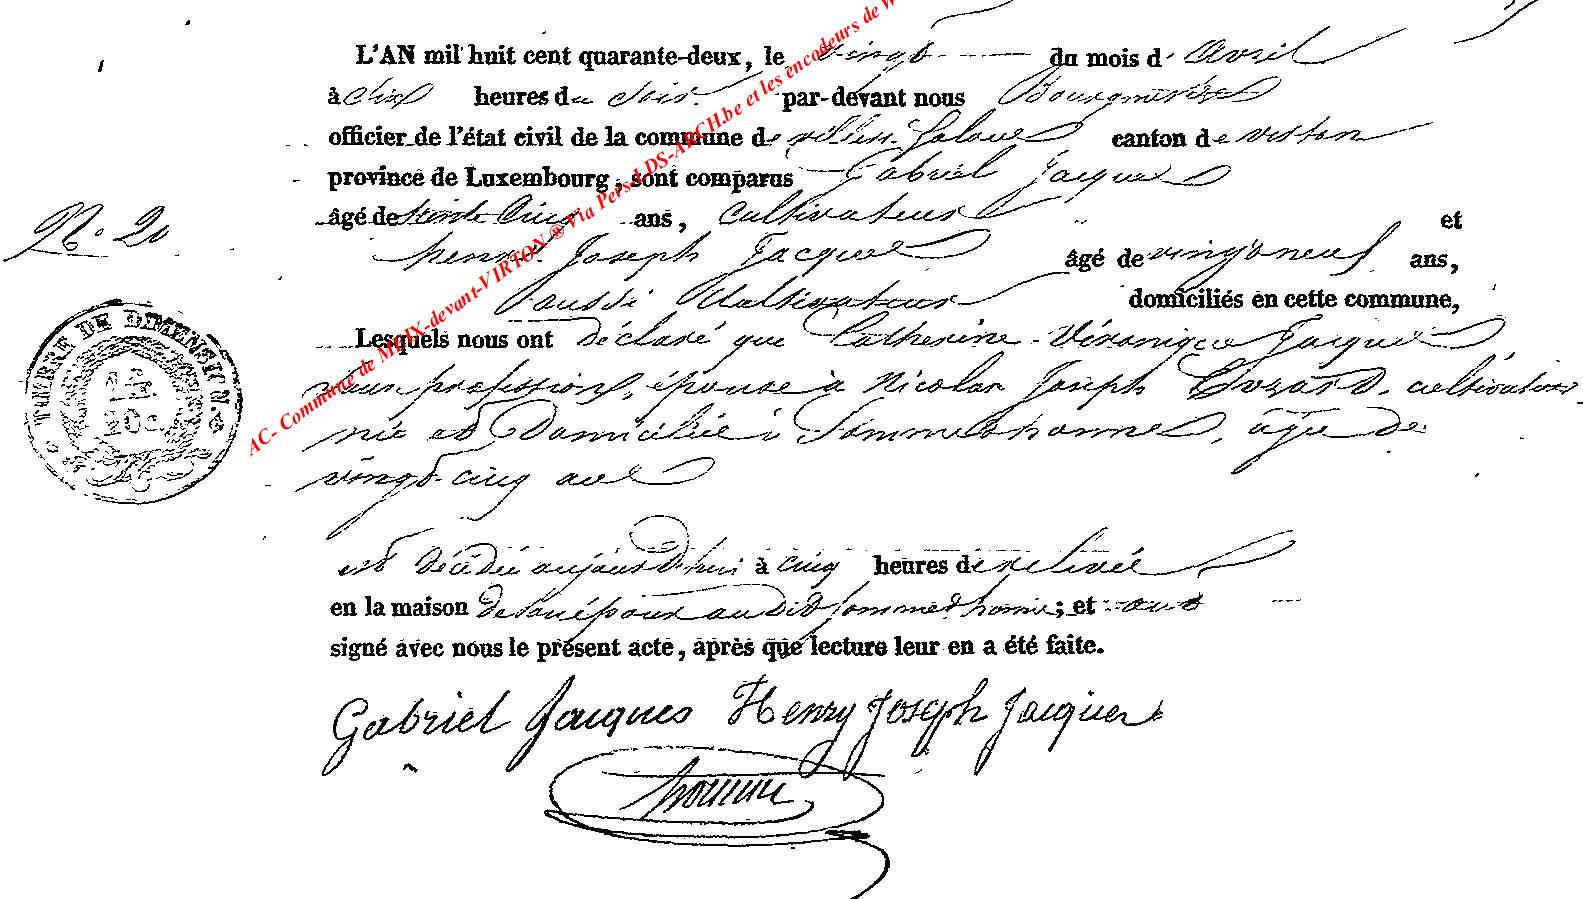 L'AN mil huit cent quarante-deux, le vingt du mois d'avril
à six heures du soir par-devant nous Bourgmestre
officier de l'état civil de la commune de villers-laloue canton de virton
province de Luxembourg, sont comparus Gabriel Jacques
âgé de trente cinq ans, cultivateur et
henri Joseph Jacques âgé de vingt neuf ans,
aussi Cultivateur domiciliés en cette commune,
Lesquels nous ont déclaré que Catherine-Véronique Jacques,
sans profession, épouse à Nicolas Joseph Evrard, cultivateur
née et Domiciliée à Sommethonne, âgée de
vingt-cinq ans
N.o 20
TIMBRE DE DIMENSION.
est décédée aujourd'hui à cinq heures de relevée
en la maison de son époux audit sommethonne; et ont
signé avec nous le présent acte, après que lecture leur en a été faite.
Gabriel Jacques Henry Joseph Jacques
AC- Commune de MEIX-devant-VIRTON ® Via Pers-LDS-ARCH.be et les encodeurs de